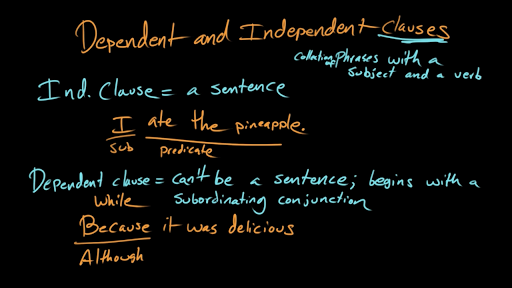 Dependent and Independent Clauses
collection of phrases with a
subject and a verb
Ind. Clause = a sentence
I ate the pineapple.
sub predicate
Dependent clause = can't be a sentence; begins with a
while subordinating conjunction
Because it was delicious
Although